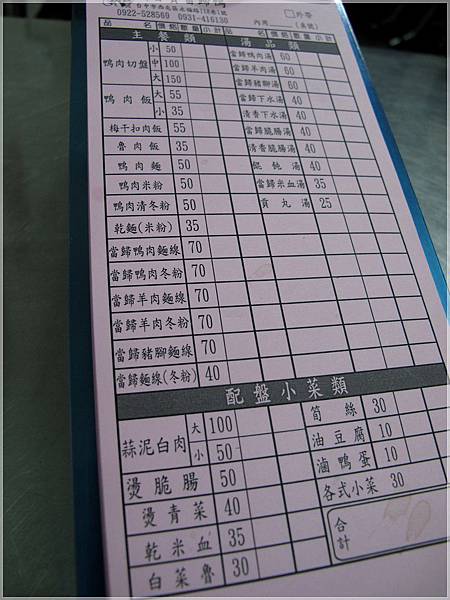 0922-528560 0931-416130 內用 (桌號)
外帶
品名 價格 數量 小計 品名 價格 數量 小計
主餐類 湯品類
鴨肉切盤 小 50 當歸鴨肉湯 60
中 100 當歸羊肉湯 60
大 150 當歸豬腳湯 60
鴨肉飯 大 55 當歸下水湯 40
小 35 清香下水湯 40
梅干扣肉飯 55 當歸脆腸湯 40
魯肉飯 35 清香脆腸湯 40
鴨肉麵 50 餛飩湯 40
鴨肉米粉 50 當歸米血湯 35
鴨肉清冬粉 50 貢丸湯 25
乾麵(米粉) 35
當歸鴨肉麵線 70
當歸鴨肉冬粉 70
當歸羊肉麵線 70
當歸羊肉冬粉 70
當歸豬腳麵線 70
當歸麵線(冬粉) 40
配盤小菜類
蒜泥白肉 大 100 筍絲 30
小 50 油豆腐 10
燙脆腸 50 滷鴨蛋 10
燙青菜 40 各式小菜 30
乾米血 35 合計
白菜魯 30